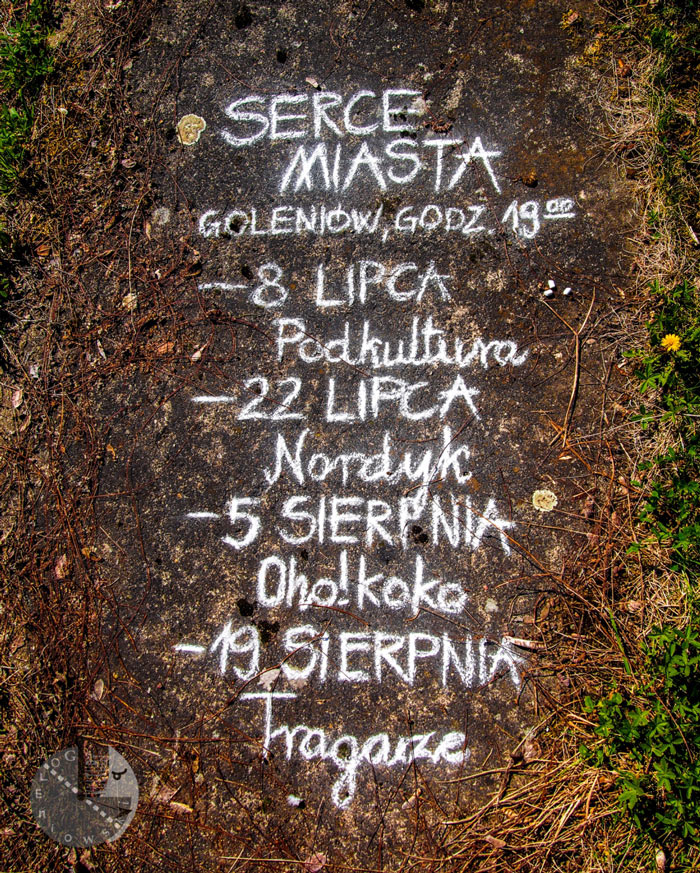 SERCE
MIASTA
GOLENIÓW, GODZ. 19⁰⁰
- 8 LIPCA
Podkultura
- 22 LIPCA
Nordyk
- 5 SIERPNIA
Oho!koko
- 19 SIERPNIA
Tragarze